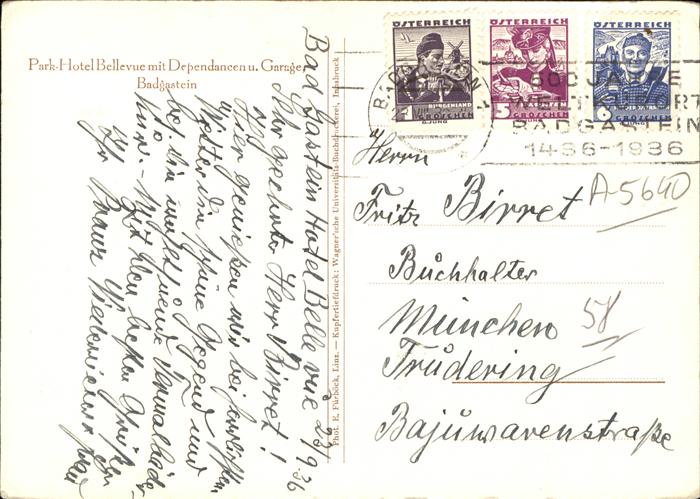 Park-Hotel Bellevue mit Dependancen u. Garage
Badgastein
Bad Gastein Hotel Belle vue 23/9.36
Sehr geehrter Herr Birret!
Hier genießen wir bei herrlichem
Wetter die schöne Gegend und
die
Kur. - Mit den besten Grüßen
Ihr Franz
Phot. E. Fürböck, Linz. — Kupfertiefdruck: Wagner'sche Universitäts-Buchdruckerei, Innsbruck
ÖSTERREICH
1 BURGENLAND
GROSCHEN
ÖSTERREICH
3
GROSCHEN
ÖSTERREICH
6
GROSCHEN
BADGASTEIN
600 JAHRE
WELTKURORT
BADGASTEIN
1436-1936
Herrn
Fritz Birret
A-5640
Buchhalter
München
58
Trudering
Bajuwarenstraße